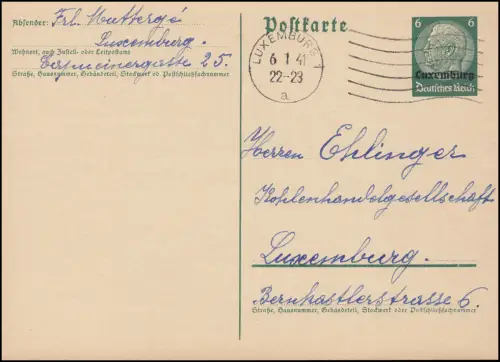 Absender: Frl. Muttergé
Luxemburg.
Wohnort, auch Zustell- oder Leitpostamt
25.
Straße, Hausnummer, Gebäudeteil, Stockwerk od. Postschließfachnummer
Postkarte
LUXEMBURG 1
6 1 41
22-23
a
6 6
Luxemburg
Deutsches Reich
Herren Ehlinger
Kohlenhandelgesellschaft
Luxemburg.
Bernkastlerstrasse 6.
Straße, Hausnummer, Gebäudeteil, Stockwerk oder Postschließfachnummer